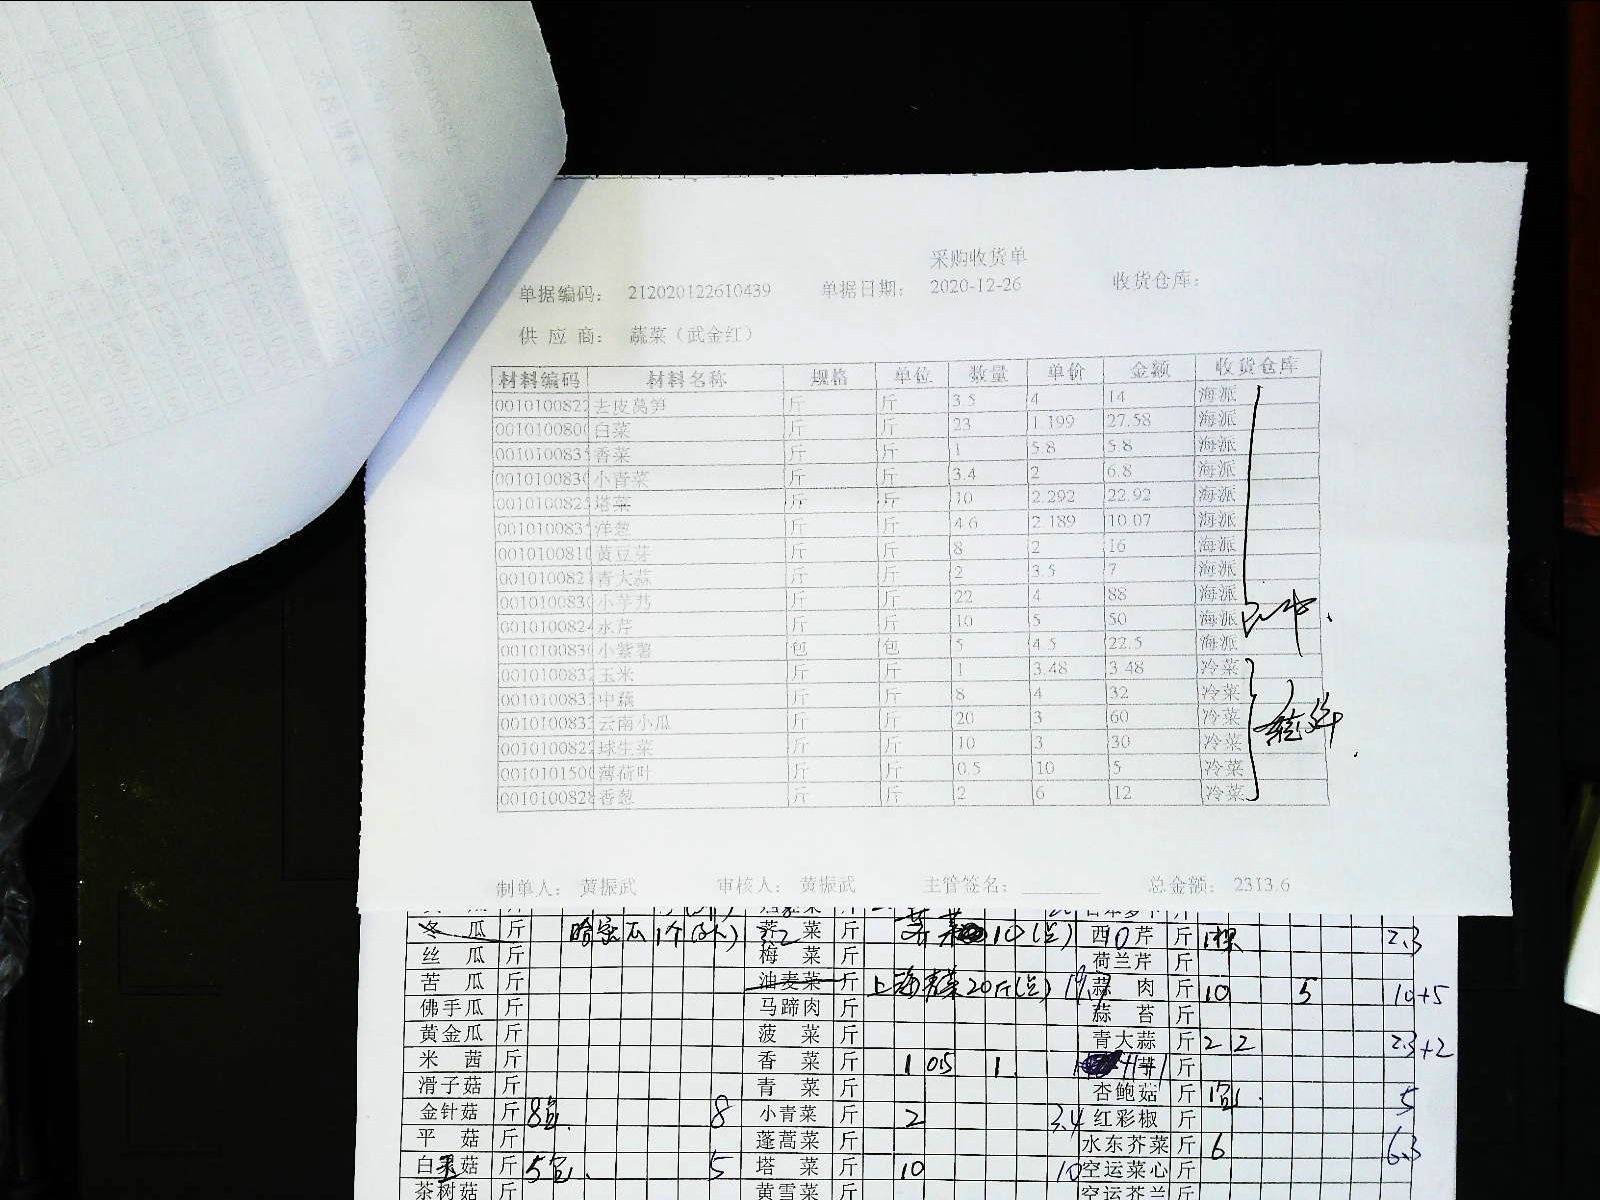 采购收货单
单据编码： 212020122610439 单据日期： 2020-12-26 收货仓库：
供 应 商： 蔬菜（武金红）
材料编码 材料名称 规格 单位 数量 单价 金额 收货仓库
0010100822 去皮莴笋 斤 斤 3.5 4 14 海派
001010080 白菜 斤 斤 23 1.199 27.58 海派
001010083 香菜 斤 斤 1 5.8 5.8 海派
001010083 小青菜 斤 斤 3.4 2 6.8 海派
001010082 塔菜 斤 斤 10 2.292 22.92 海派
001010083 洋葱 斤 斤 4.6 2.189 10.07 海派
001010081 黄豆芽 斤 斤 8 2 16 海派
001010082 青大蒜 斤 斤 2 3.5 7 海派
001010083 小芋艿 斤 斤 22 4 88 海派
001010082 水芹 斤 斤 10 5 50 海派
001010083 小紫薯 包 包 5 4.5 22.5 海派
001010083 玉米 斤 斤 1 3.48 3.48 冷菜
001010083 中藕 斤 斤 8 4 32 冷菜
001010083 云南小瓜 斤 斤 20 3 60 冷菜
001010082 球生菜 斤 斤 10 3 30 冷菜
001010150 薄荷叶 斤 斤 0.5 10 5 冷菜
001010082 香葱 斤 斤 2 6 12 冷菜
制单人： 黄振武 审核人： 黄振武 主管签名： 总金额： 2313.6
冬 瓜 斤 哈密瓜1个(大) 菜 斤 10 西 芹 斤 1棵 2.3
丝 瓜 斤 梅 菜 斤 荷兰芹 斤
苦 瓜 斤 油麦菜 斤 上海青菜20斤 蒜 肉 斤 10 5 10+5
佛手瓜 斤 马蹄肉 斤 蒜 苔 斤
黄金瓜 斤 菠 菜 斤 青大蒜 斤 2 2 2.3+2
米 茜 斤 香 菜 斤 1 0.5 1 斤
滑子菇 斤 青 菜 斤 杏鲍菇 斤 1包 5
金针菇 斤 8包 8 小青菜 斤 2 3.4 红彩椒 斤
平 菇 斤 蓬蒿菜 斤 水东芥菜 斤 6 6.3
白玉菇 斤 5包 5 塔 菜 斤 10 10 空运菜心 斤
茶树菇 斤 黄雪菜 斤 空运芥兰 斤